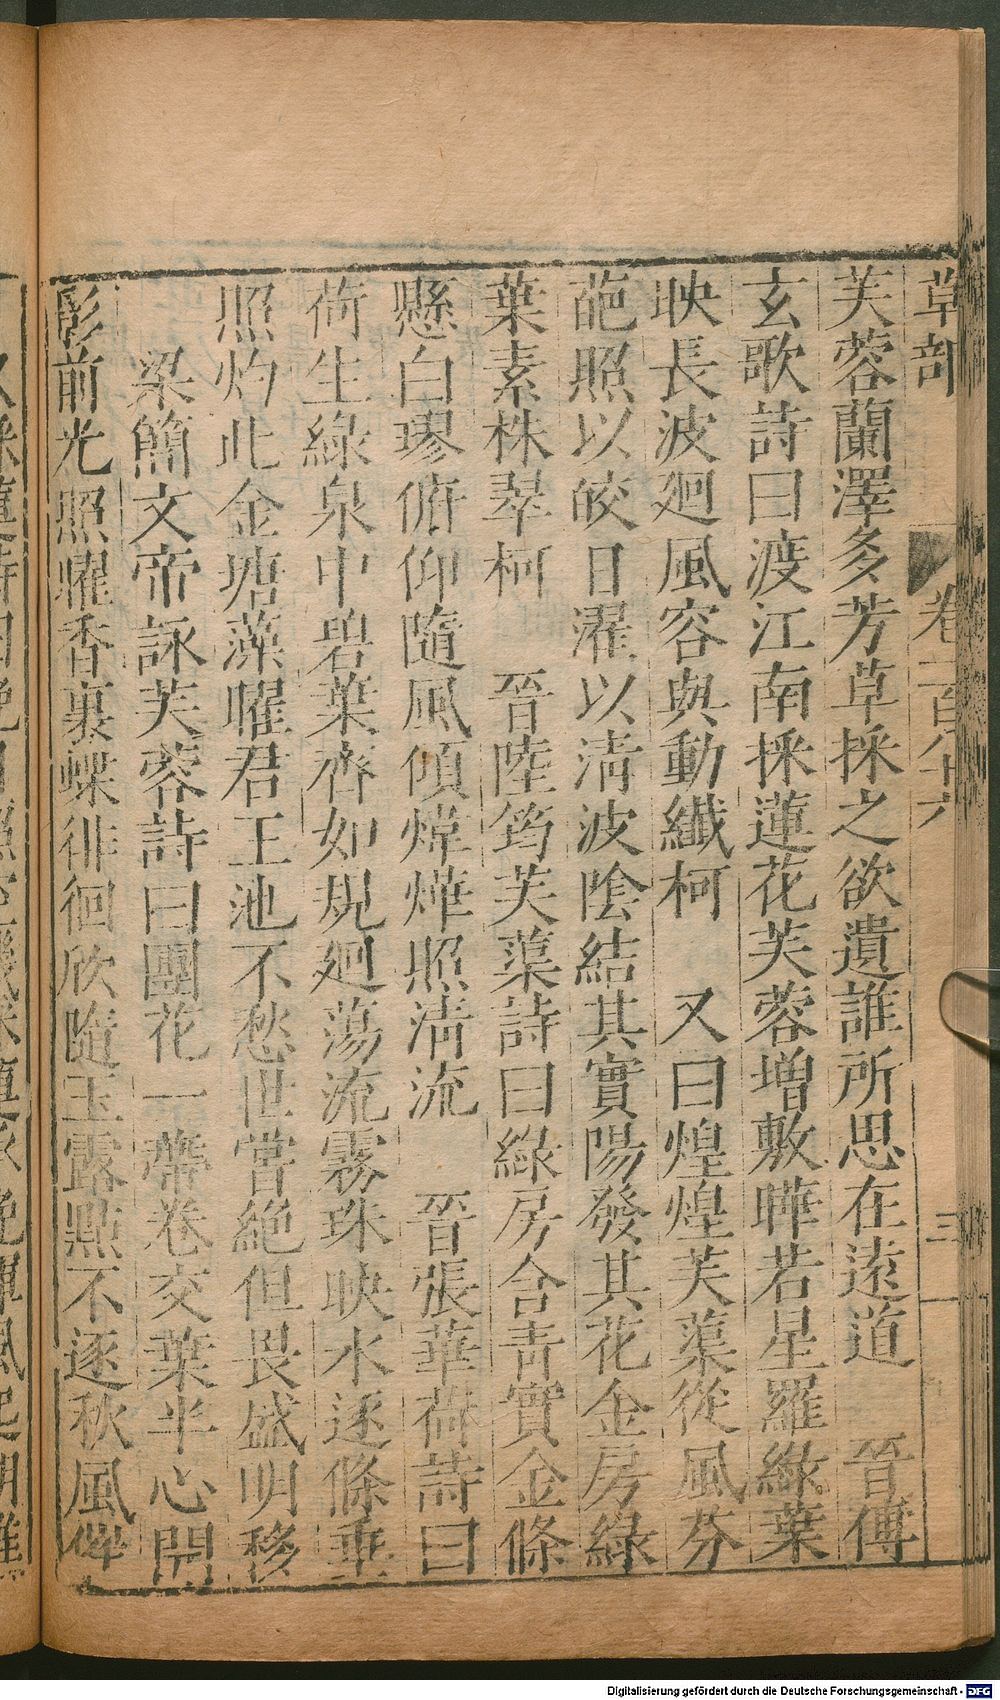 草部
卷一百八十六
三
芙蓉蘭澤多芳草採之欲遺誰所思在遠道　晉傅
玄歌詩曰渡江南採蓮花芙蓉增敷曄若星羅綠葉
映長波廻風容與動纖柯　又曰煌煌芙蕖從風芬
葩照以皎日濯以清波陰結其實陽發其花金房綠
葉素株翠柯　晉陸筠芙蕖詩曰綠房含青實金條
懸白璆俯仰隨風傾煒燁照清流　晉張華荷詩曰
荷生綠泉中碧葉齊如規廻蕩流霧珠映水逐條垂
照灼此金塘藻曜君王池不愁世嘗絕但畏盛明移
梁簡文帝詠芙蓉詩曰圓花一蔕卷交葉半心開
影前光照曜香裏蝶徘徊欣隨玉露點不逐秋風
Digitalisierung gefördert durch die Deutsche Forschungsgemeinschaft - DFG